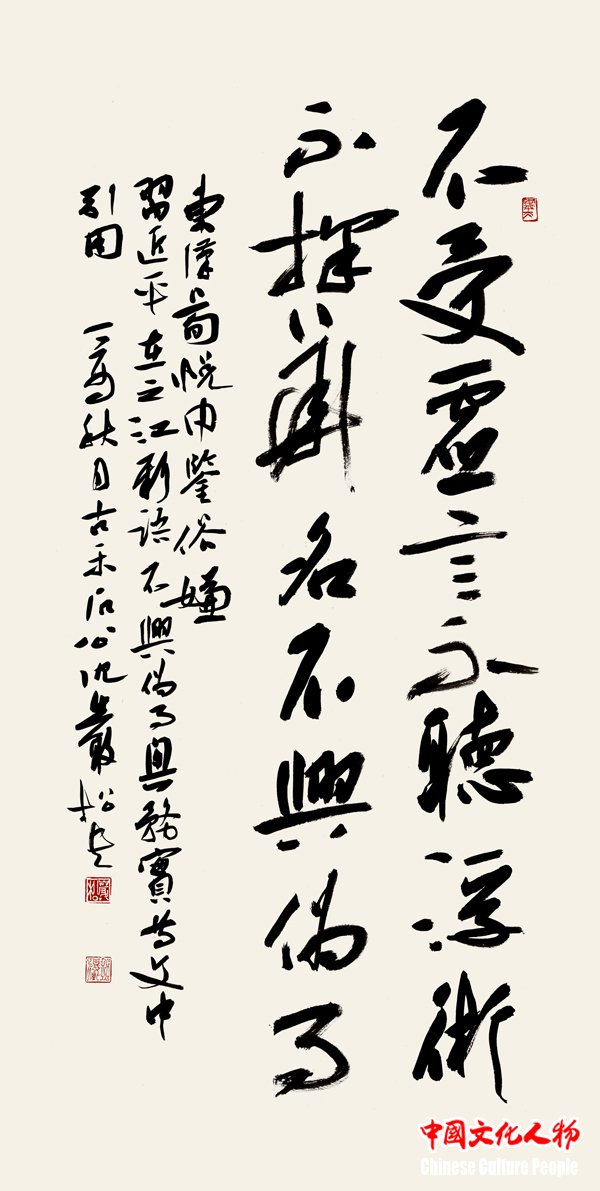 不受虛言不聽浮術
不採華名不興偽事
東漢荀悅申鑒俗嫌
習近平在之江新語不興偽事興務實等文中
引用 秋月古禾 嚴松
中國文化人物
Chinese Culture People